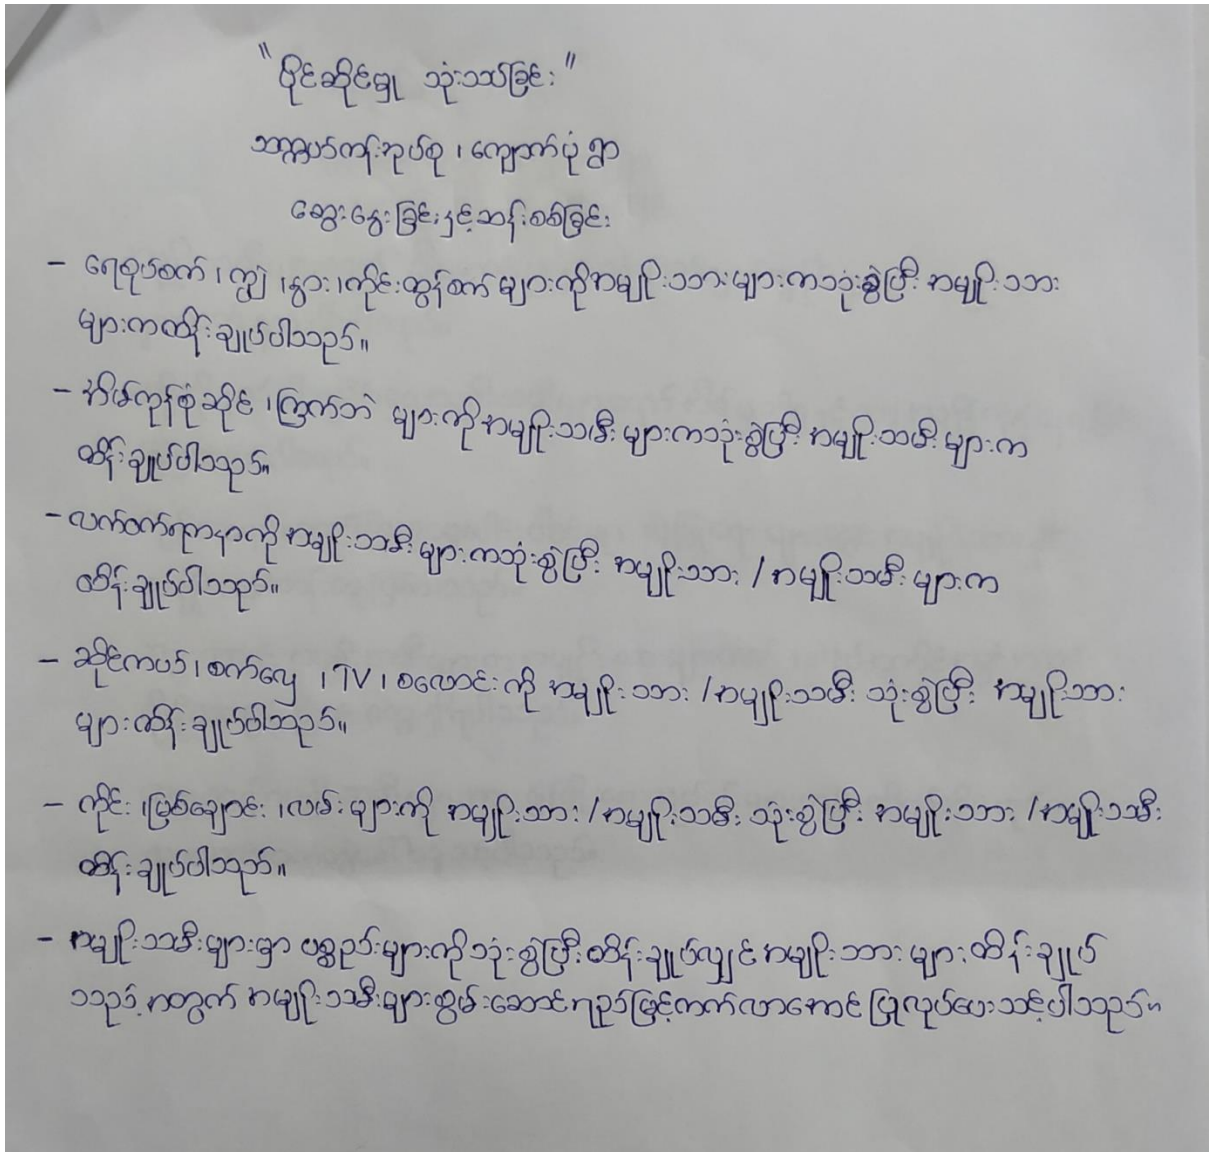 "ပိုင်ဆိုင်မှု သုံးသပ်ခြင်း"
ဘက္ကပင်ကန်းအုပ်စု ၊ ကျောက်ပုံ ရွာ
ဆွေးနွေးခြင်းနှင့်ဆန်းစစ်ခြင်း
- ရေစုပ်စက် ၊ ကျွဲ ၊ နွား ၊ ကိုင်းထွန်စက် များကိုအမျိုးသားများကသုံးစွဲပြီး အမျိုးသား
များကထိန်းချုပ်ပါသည်။
- အိမ်ကုန်စုံဆိုင် ၊ ကြက်ဘဲ များကို အမျိုးသမီး များကသုံးစွဲပြီး အမျိုးသမီး များက
ထိန်းချုပ်ပါသည်။
- လက်ဝတ်ရတနာကို အမျိုးသမီး များကသုံးစွဲပြီး အမျိုးသား / အမျိုးသမီး များက
ထိန်းချုပ်ပါသည်။
- ဆိုင်ကယ် ၊ စက်လှေ ၊ TV ၊ စလောင်း ကို အမျိုးသား / အမျိုးသမီး သုံးစွဲပြီး အမျိုးသား
များထိန်းချုပ်ပါသည်။
- ကိုင်း ၊ မြစ်ချောင်း ၊ လမ်းများကို အမျိုးသား / အမျိုးသမီး သုံးစွဲပြီး အမျိုးသား / အမျိုးသမီး
ထိန်းချုပ်ပါသည်။
- အမျိုးသမီးများမှာ ပစ္စည်းများကိုသုံးစွဲပြီးထိန်းချုပ်လျှင် အမျိုးသား များထိန်းချုပ်
သည့်အတွက် အမျိုးသမီးများစွမ်းဆောင်ရည်မြင့်တက်လာအောင် ပြုလုပ်ပေးသင့်ပါသည်။